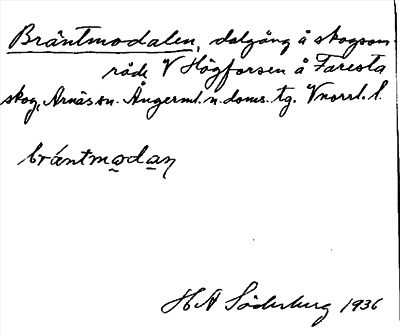 Bräntmodalen, dalgång å skogsom-
råde V Högforsen å Faresta
skog, Arnäs sn. Ångerml. n. doms. tg. Vnorrl. l.
bräntmodan
H A Söderberg 1936